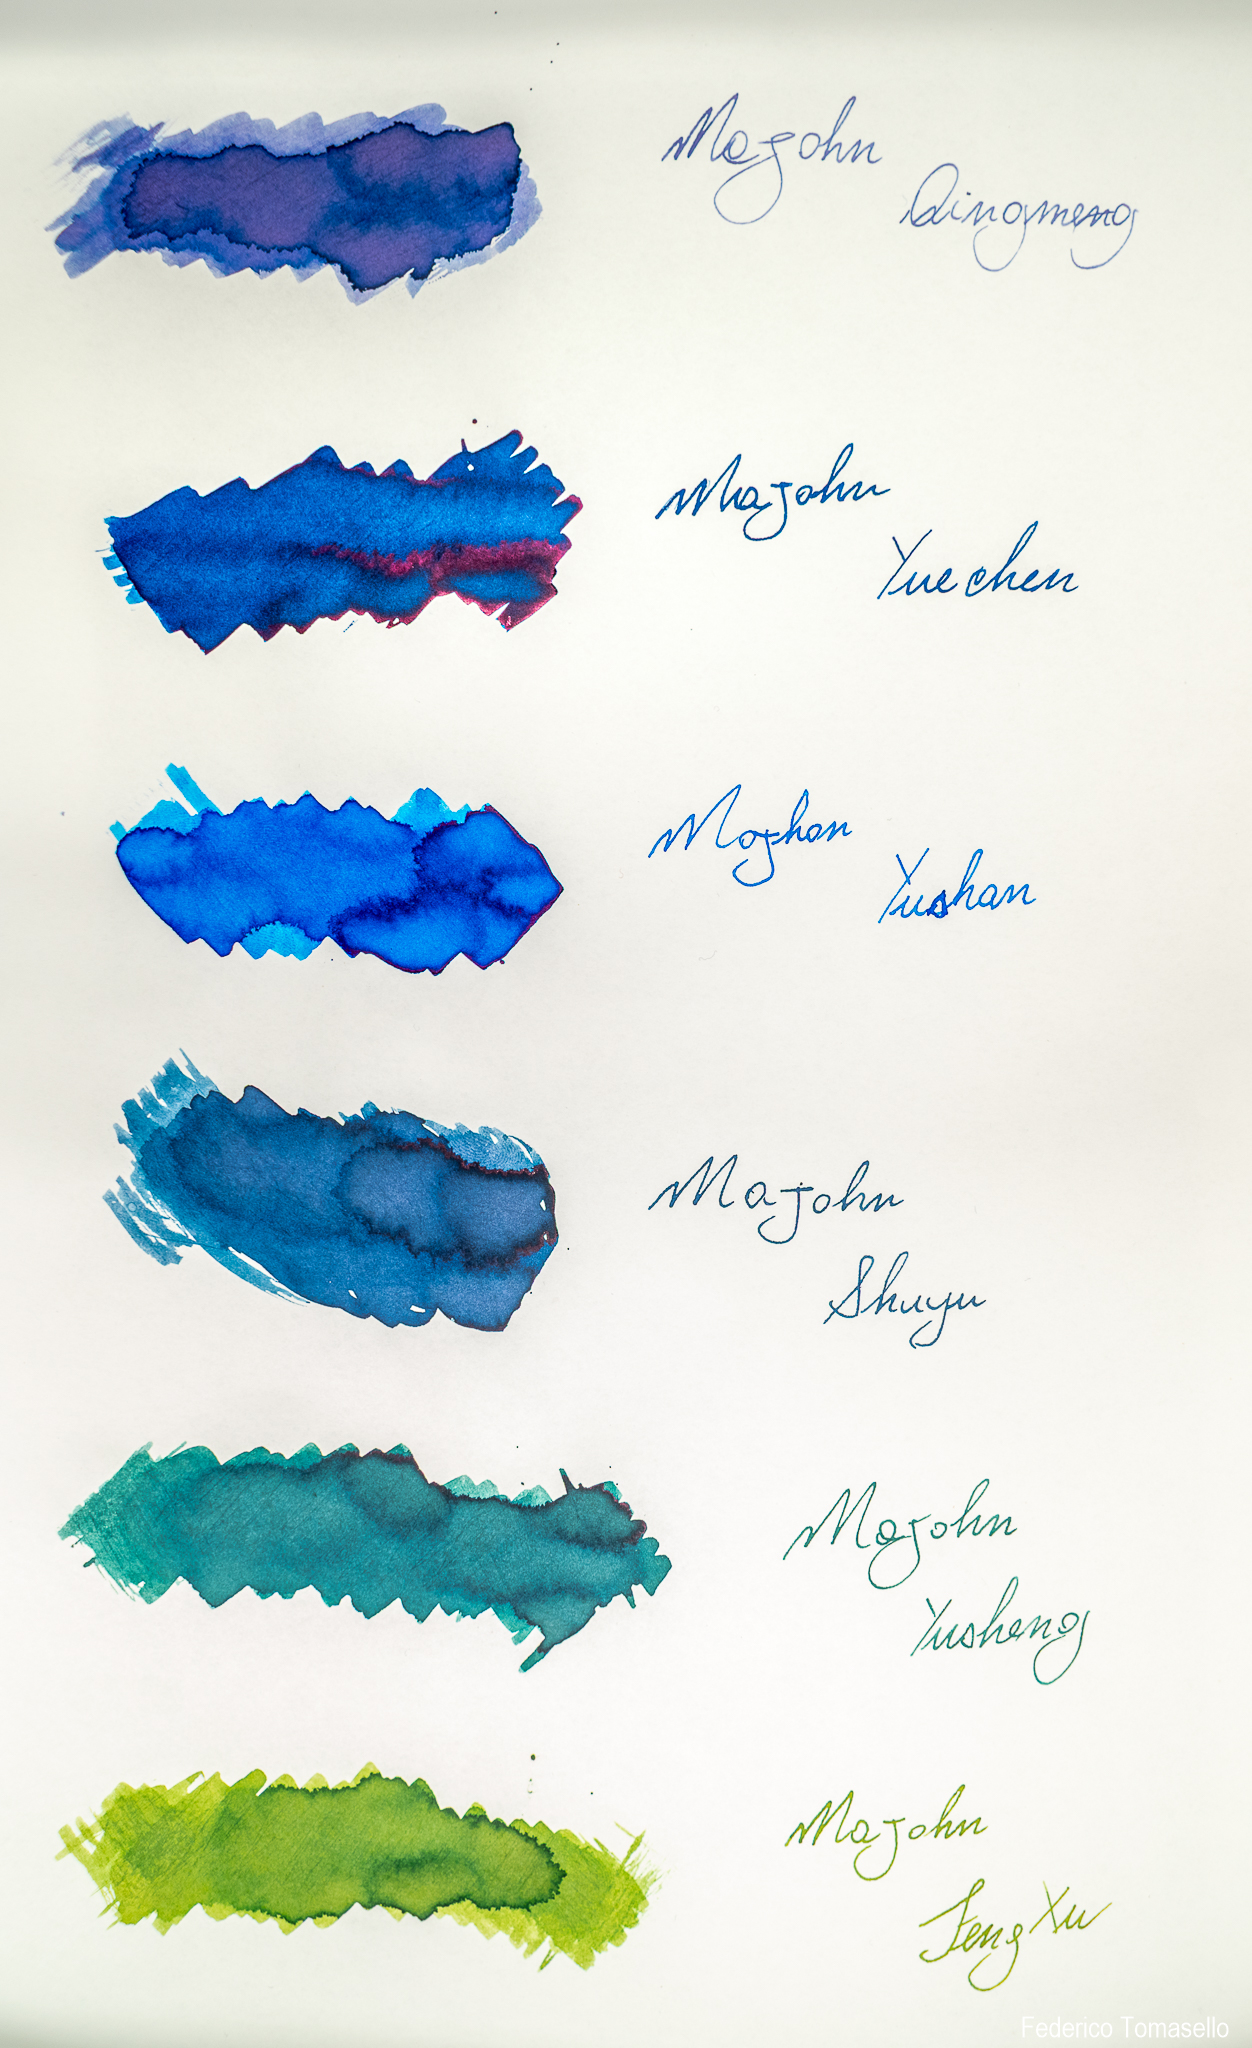 Majohn
Qingmeng
Majohn
Yuechen
Mojhon
Yushan
Majohn
Shuyu
Majohn
Yusheng
Majohn
Feng Xu
Federico Tomasello